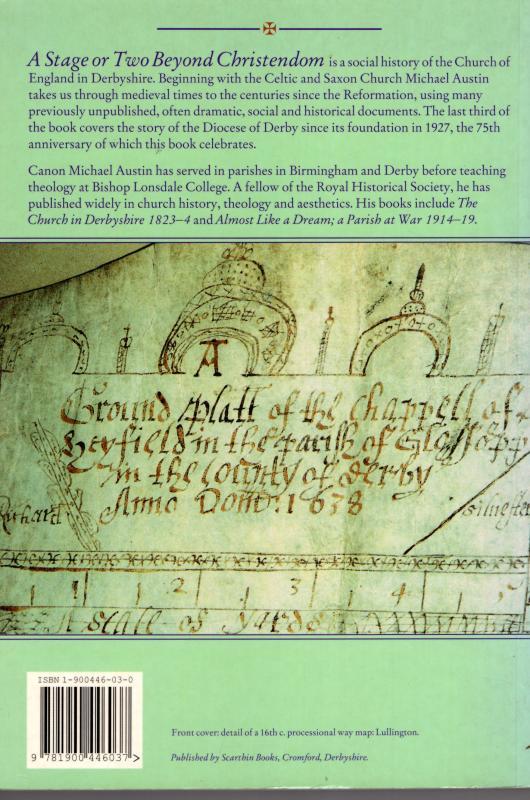 A Stage or Two Beyond Christendom is a social history of the Church of
England in Derbyshire. Beginning with the Celtic and Saxon Church Michael Austin
takes us through medieval times to the centuries since the Reformation, using many
previously unpublished, often dramatic, social and historical documents. The last third of
the book covers the story of the Diocese of Derby since its foundation in 1927, the 75th
anniversary of which this book celebrates.
Canon Michael Austin has served in parishes in Birmingham and Derby before teaching
theology at Bishop Lonsdale College. A fellow of the Royal Historical Society, he has
published widely in church history, theology and aesthetics. His books include The
Church in Derbyshire 1823–4 and Almost Like a Dream; a Parish at War 1914–19.
A
Ground platt of the chappell of
Heyfield in the parish of Glossopp
in the county of derby
Anno Dom: 1638
Richard
1 2 3 4 5
A scale of yards
ISBN 1-900446-03-0
9 781900 446037 >
Front cover: detail of a 16th c. processional way map: Lullington.
Published by Scarthin Books, Cromford, Derbyshire.